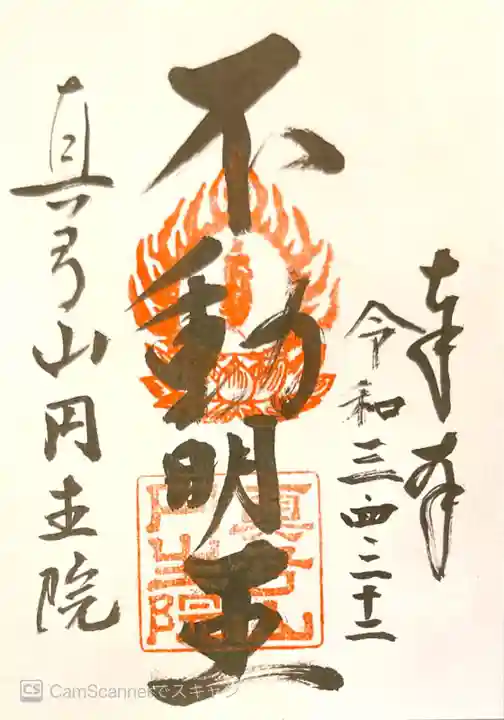 奉拝
令和三.四.二十二
不動明王
真弓山
円生院
真弓山円生院
CamScannerでスキャン